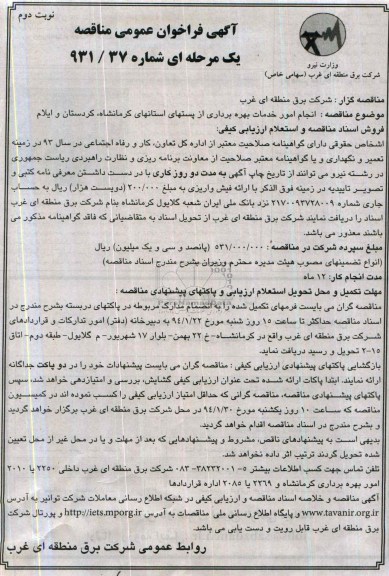 نوبت دوم
آگهی فراخوان عمومی مناقصه
یک مرحله ای شماره ۳۷ / ۹۳۱
وزارت نیرو
شرکت برق منطقه ای غرب (سهامی خاص)
مناقصه گزار : شرکت برق منطقه ای غرب
موضوع مناقصه : انجام امور خدمات بهره برداری از پستهای استانهای کرمانشاه، کردستان و ایلام
فروش اسناد مناقصه و استعلام ارزیابی کیفی:
اشخاص حقوقی دارای گواهینامه صلاحیت معتبر از اداره کل تعاون، کار و رفاه اجتماعی در سال ۹۳ در زمینه
تعمیر و نگهداری و یا گواهینامه معتبر صلاحیت از معاونت برنامه ریزی و نظارت راهبردی ریاست جمهوری
در رشته نیرو می توانند از تاریخ چاپ آگهی به مدت دو روز کاری با در دست داشتن معرفی نامه کتبی و
تصویر تاییدیه در زمینه فوق الذکر با ارائه فیش واریزی به مبلغ ۲۰۰/۰۰۰ (دویست هزار) ریال به حساب
جاری شماره ۲۱۷۰۰۹۳۷۲۸۰۰۹ نزد بانک ملی ایران شعبه گلایول کرمانشاه بنام شرکت برق منطقه ای غرب
اسناد را دریافت نمایند شرکت برق منطقه ای غرب از تحویل اسناد به متقاضیانی که فاقد گواهینامه مذکور می
باشند معذور می باشد.
مبلغ سپرده شرکت در مناقصه : ۵۳۱/۰۰۰/۰۰۰ (پانصد و سی و یک میلیون) ریال
(انواع تضمینهای مصوب هیئت مدیره محترم وزیران بشرح مندرج اسناد مناقصه)
مدت انجام کار: ۱۲ ماه
مهلت تکمیل و محل تحویل استعلام ارزیابی و پاکتهای پیشنهادی مناقصه :
مناقصه گران می بایست فرمهای تکمیل شده را به انضمام مدارک مربوطه در پاکتهای دربسته بشرح مندرج در
اسناد مناقصه حداکثر تا ساعت ۱۵ روز شنبه مورخ ۹۴/۱/۲۲ به دبیرخانه (دفتر) امور تدارکات و قراردادهای
شرکت برق منطقه ای غرب واقع در کرمانشاه- خ ۲۲ بهمن- بلوار ۱۷ شهریور- م گلایول- طبقه دوم- اتاق
۲-۱۵ تحویل و رسید دریافت نماید.
بازگشایی پاکتهای پیشنهادی ارزیابی کیفی : مناقصه گران می بایست پیشنهادات خود را در دو پاکت جداگانه
ارائه نمایند. ابتدا پاکات ارائه شده تحت عنوان ارزیابی کیفی گشایش، بررسی و امتیازدهی خواهد شد، سپس
پاکتهای پیشنهادی مناقصه، مناقصه گرانی که حداقل امتیاز ارزیابی کیفی را کسب نموده اند در کمیسیون
مناقصه که ساعت ۱۰ روز یکشنبه مورخ ۹۴/۱/۳۰ در محل شرکت برق منطقه ای غرب برگزار خواهد گردید
و بشرح مندرج در اسناد مناقصه اقدام خواهد گردید.
بدیهی است به پیشنهادهای ناقص، مشروط و پیشنهادهایی که بعد از مهلت و یا در محل غیر از محل تعیین
شده تحویل گردند ترتیب اثر داده نخواهد شد.
تلفن تماس جهت کسب اطلاعات بیشتر ۵- ۳۸۲۳۲۰۰۱-۰۸۳ شرکت برق منطقه ای غرب داخلی ۲۲۵۰ یا ۲۰۱۰
امور بهره برداری کرمانشاه و ۲۲۶۹ یا ۲۰۸۵ اداره قراردادها
آگهی مناقصه و خلاصه اسناد مناقصه و ارزیابی کیفی در شبکه اطلاع رسانی معاملات شرکت توانیر به آدرس
www.tavanir.org.ir و پایگاه اطلاع رسانی ملی مناقصات به آدرس http://iets.mporg.ir و پورتال شرکت
برق منطقه ای غرب قابل رویت و دست یابی می باشد.
روابط عمومی شرکت برق منطقه ای غرب